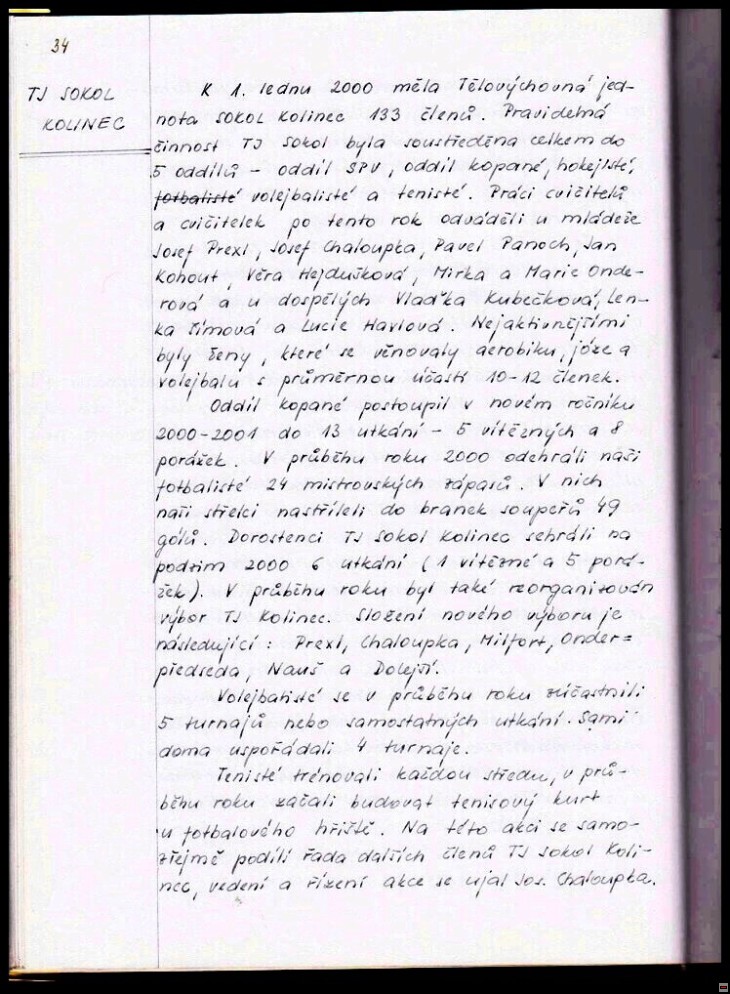 34
TJ SOKOL
KOLINEC
K 1. lednu 2000 měla Tělovýchovná jed-
nota SOKOL Kolinec 133 členů. Pravidelná
činnost TJ Sokol byla soustředěna celkem do
5 oddílů - oddíl SPV, oddíl kopané, hokejisté,
fotbalisté volejbalisté a tenisté. Práci cvičitelů
a cvičitelek po tento rok odváděli u mládeže
Josef Prexl, Josef Chaloupka, Pavel Panoch, Jan
Kohout, Věra Hejdušková, Mirka a Marie Onde-
rová a u dospělých Vlaďka Kubečková, Len-
ka Šímová a Lucie Havlová. Nejaktivnějšími
byly ženy, které se věnovaly aerobiku, józe a
volejbalu s průměrnou účastí 10-12 členek.
Oddíl kopané postoupil v novém ročníku
2000-2001 do 13 utkání - 5 vítězných a 8
porážek. V průběhu roku 2000 odehráli naši
fotbalisté 24 mistrovských zápasů. V nich
naši střelci nastříleli do branek soupeřů 49
gólů. Dorostenci TJ Sokol Kolinec sehráli na
podzim 2000 6 utkání (1 vítězné a 5 porá-
žek). V průběhu roku byl také reorganizován
výbor TJ Kolinec. Složení nového výboru je
následující: Prexl, Chaloupka, Milfort, Onder=
předseda, Nauš a Dolejší.
Volejbalisté se v průběhu roku zúčastnili
5 turnajů nebo samostatných utkání. Sami
doma uspořádali 4 turnaje.
Tenisté trénovali každou středu, v prů-
běhu roku začali budovat tenisový kurt
u fotbalového hřiště. Na této akci se samo-
zřejmě podílí řada dalších členů TJ Sokol Koli-
nec, vedení a řízení akce se ujal Jos. Chaloupka.